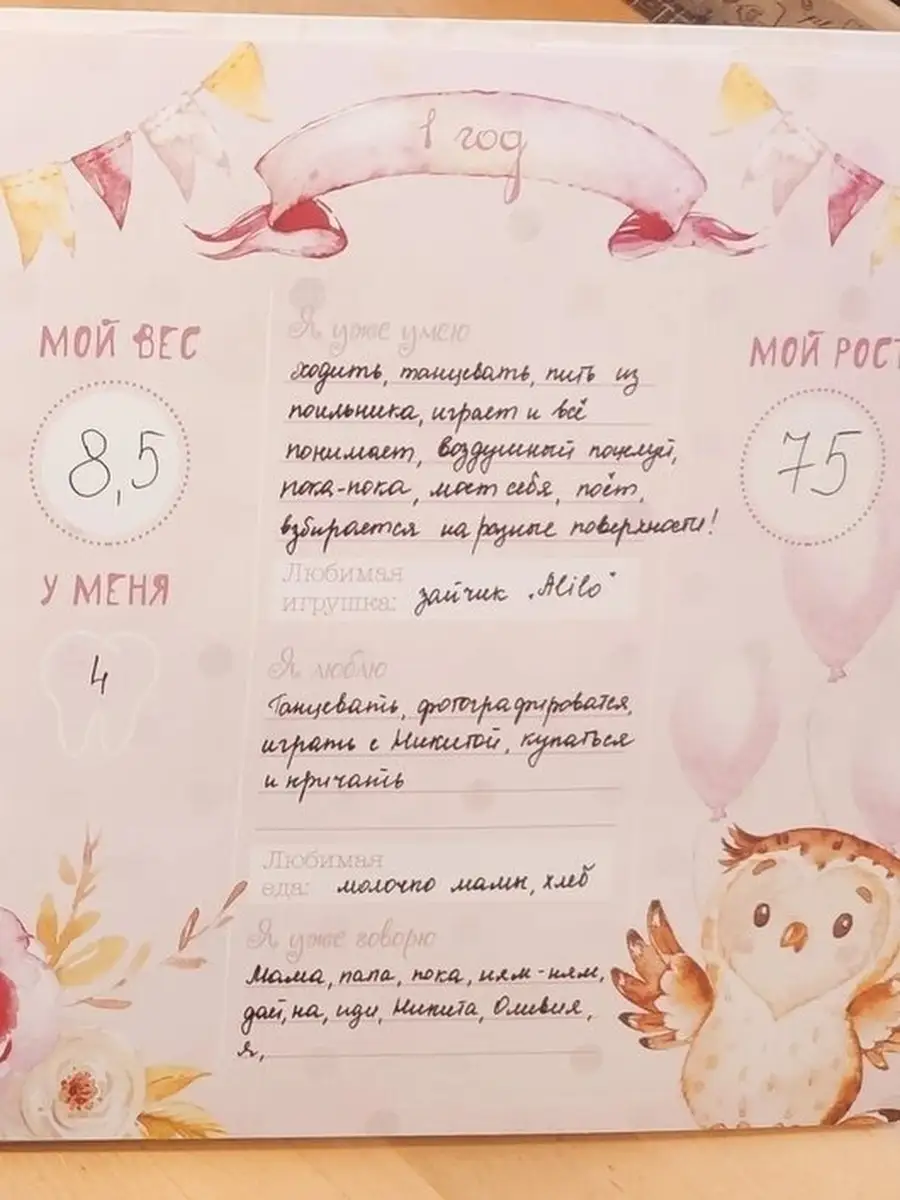 1 год
МОЙ ВЕС
8,5
У МЕНЯ
4
Я уже умею
ходить, танцевать, пить из
поильника, играет и всё
понимает, воздушный поцелуй,
пока-пока, моет себя, поёт,
взбирается на разные поверхности!
Любимая
игрушка: зайчик "Alilo"
Я люблю
Танцевать, фотографироватся,
играть с Никитой, купаться
и кричать
Любимая
еда: молочко мамы, хлеб
Я уже говорю
Мама, папа, пока, ням-ням,
дай, на, иди, Никита, Оливия,
я,
МОЙ РОСТ
75